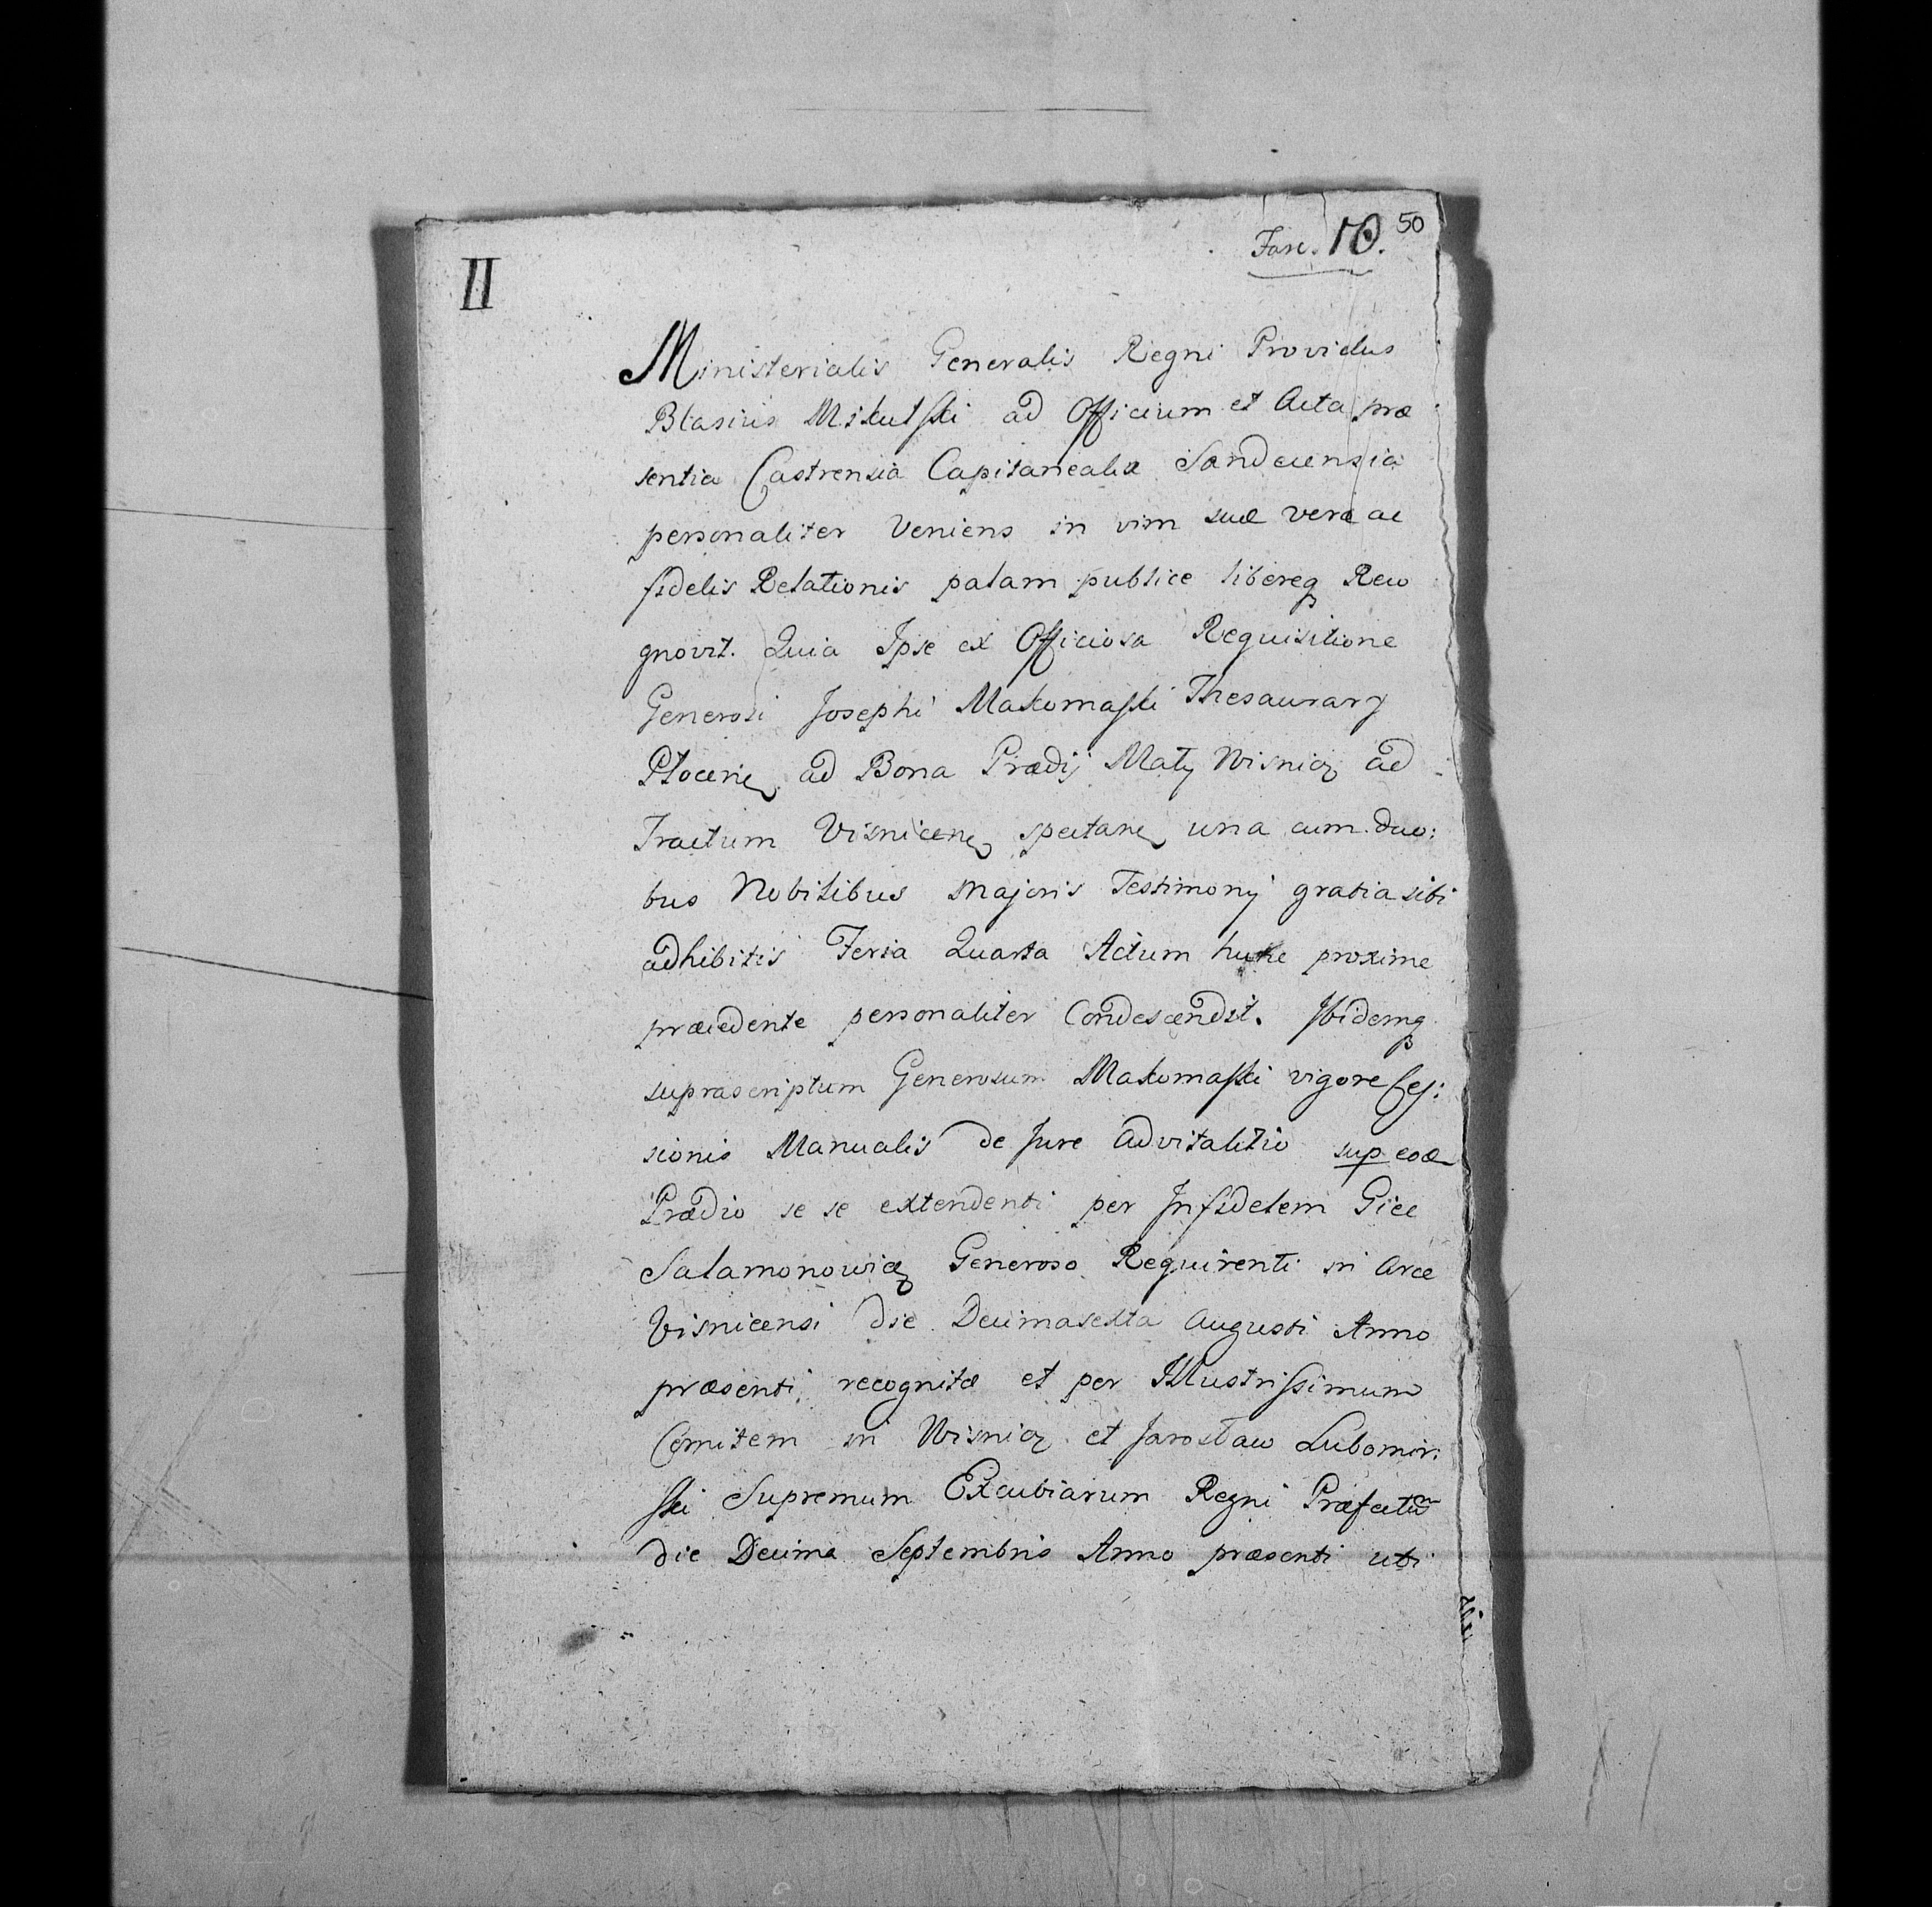 II
Fasc. 10. 50
Ministerialis Generalis Regni Providus
Blasius Mikulski ad Officium et Acta præ
sentia Castrensia Capitanealia Sandecensia
personaliter Veniens in vim suæ veræ ac
fidelis Relationis palam publice libereq Reco
gnovit. Quia Ipse ex Officiosa Requisitione
Generosi Josephi Makomaski Thesaurarÿ
Płocen ad Bona Prædij Mały Wisnicz ad
Tractum Visnicen spectan una cum duo:
bus Nobilibus Majoris Testimonij gratia sibi
adhibitis Feria Quarta Actum hunc proxime
præcedente personaliter Condescendit. Ibidemq
suprascriptum Generosum Makomaski vigore Ces:
sionis Manualis de Jure advitalitio sup eod
Prædio se se extendenti per Infidelem
Salamonowicz Generoso Requirenti in Arce
Visnicensi die Decimasexta Augusti Anno
præsenti, recognitæ et per Illustrissimum
Comitem in Wisnicz et Jarosław Lubomir:
ski Supremum Excubiarum Regni Præfectum
die Decima Septembris Anno præsenti uti